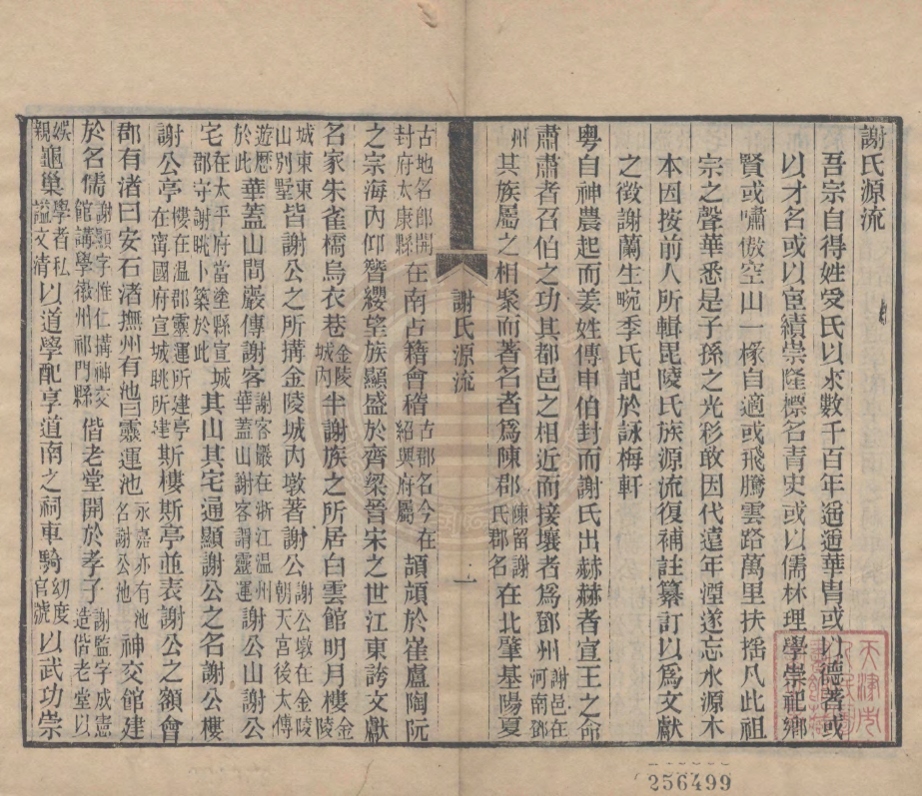 謝氏源流
吾宗自得姓受氏以來數千百年遥遥華胄或以德著或
以才名或以宦績崇隆標名青史或以儒林理學崇祀鄉
賢或嘯傲空山一椽自適或飛騰雲路萬里扶搖凡此祖
宗之聲華悉是子孫之光彩敢因代遠年湮遂忘水源木
本因按前人所輯毘陵氏族源流復補註纂訂以爲文獻
之徵謝蘭生畹季氏記於詠梅軒
粤自神農起而姜姓傳申伯封而謝氏出赫赫者宣王之命
肅肅者召伯之功其都邑之相近而接壤者爲鄧州謝邑在河南鄧
州其族屬之相聚而著名者爲陳郡陳留謝氏郡名在北肇基陽夏
謝氏源流
一
古地名卽開封府太康縣在南占籍會稽古郡名今在紹興府屬頡頏於崔盧陶阮
之宗海內仰簪纓望族顯盛於齊梁晉宋之世江東誇文獻
名家朱雀橋烏衣巷金陵城內半謝族之所居白雲館明月樓金陵
城東東山別墅皆謝公之所搆金陵城內墩著謝公謝公墩在金陵朝天宮後太傅
遊歷於此華蓋山間巖傳謝客謝客巖在浙江溫州華蓋山謝客謂靈運謝公山謝公
宅在太平府當塗縣宣城郡守謝眺卜築於此其山其宅通顯謝公之名謝公樓
謝公亭樓在温郡靈運所建亭在甯國府宣城眺所建斯樓斯亭並表謝公之額會
郡有渚曰安石渚撫州有池曰靈運池永嘉亦有池名謝公池神交館建
於名儒謝顯字惟仁搆神交館講學徽州祁門縣偕老堂開於孝子謝監字成憲造偕老堂以
娛親龜巢學者私謚文清以道學配享道南之祠車騎幼度官號以武功崇
256499